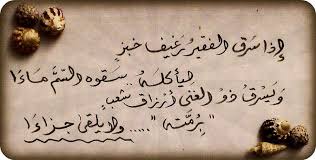 إذا سرق الفقير رغيف خبز
ليأكله سقوه السّم ماءا
ويسرق ذو الغنى أرزاق شعب
"برمّته" ..... ولا يلقى جزاءا